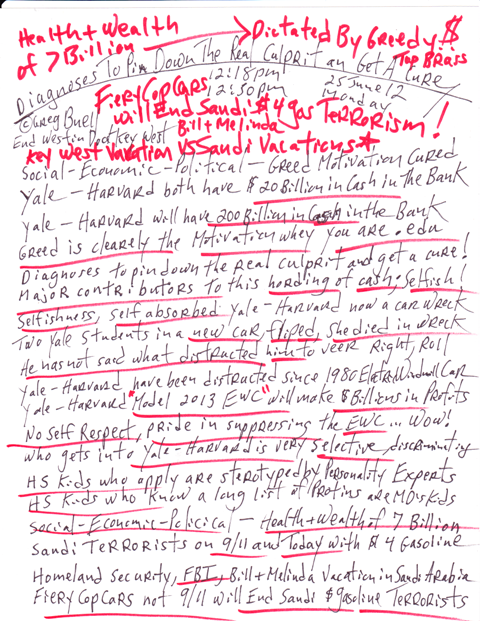 Health + Wealth
of 7 Billion
Dictated By Greedy $
Top Brass
Diagnoses To Pin Down The Real Culprit an Get A Cure
Fiery Cop Cars 12:18pm 25 June 12
12:50pm Monday
will End Saudi $4 gas Terrorism!
©Greg Buell
End Westin Dock Key West
Bill + Melinda
Key West Vacation VS Saudi Vacations*
Social-Economic-Political - Greed Motivation Cured
Yale - Harvard both have $20 Billion in Cash in the Bank
Yale - Harvard will have 200 Billion in Cash in the Bank
Greed is clearely the Motivation when you are .edu
Diagnoses to pin down the Real culprit and get a cure!
Major contributors to this hording of cash; Selfish!
Selfishness, self absorbed Yale - Harvard now a car wreck
Two Yale Students in a new car, fliped, she died in wreck
He has not said what distracted him to veer Right, Roll
Yale-Harvard have been distracted since 1980 Windmill Car
Yale-Harvard "Model 2013 EWC" will make $Billions in Profits
No self Respect, pride in suppressing the EWC... Wow!
who gets into Yale-Harvard is very selective,
HS Kids who apply are sterotyped by Personality Experts
HS Kids who know a long list of Protins are MDs Kids
Social-Economic-Policical - Health + Wealth of 7 Billion
Saudi Terrorists on 9/11 and Today with $4 Gasoline
Homeland Security, FBI, Bill + Melinda Vacation in Saudi Arabia
Fiery Cop Cars not 9/11 will End Saudi $gasoline Terrorists